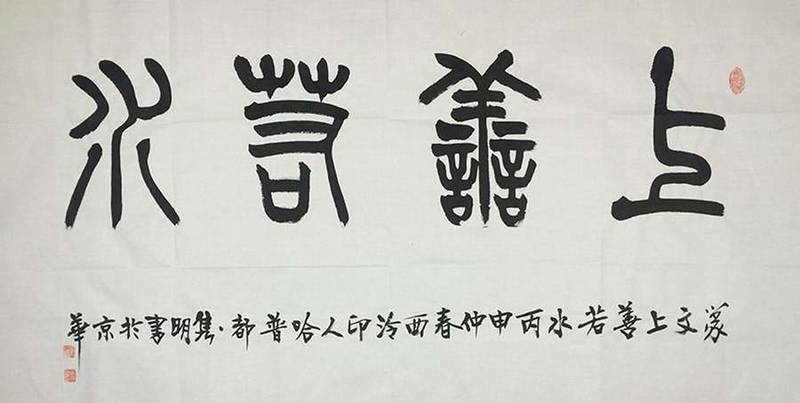 上善若水
篆文上善若水丙申仲春西泠印人哈普都·隽明書於京華